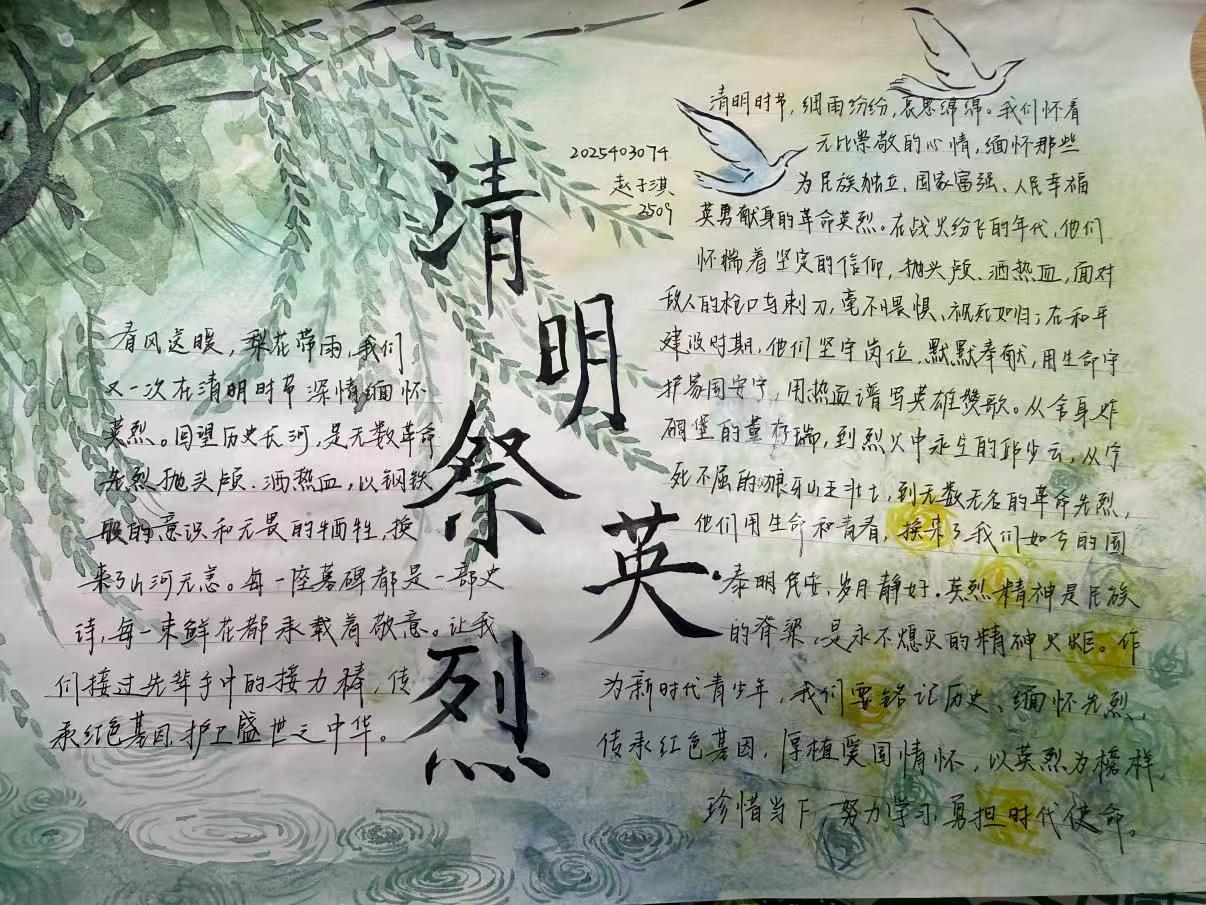 清明祭英烈
2025403074
赵子淇
2509
春风送暖,梨花带雨,我们
又一次在清明时节深情缅怀
英烈。回望历史长河,是无数革命
先烈抛头颅、洒热血,以钢铁
般的意识和无畏的牺牲,换
来了山河无恙。每一座墓碑都是一部史
诗,每一束鲜花都承载着敬意。让我
们接过先辈手中的接力棒,传
承红色基因,护卫盛世之中华。
清明时节,细雨纷纷,哀思绵绵。我们怀着
无比崇敬的心情,缅怀那些
为民族独立、国家富强、人民幸福
英勇献身的革命英烈。在战火纷飞的年代,他们
怀揣着坚定的信仰,抛头颅、洒热血,面对
敌人的枪口与刺刀,毫不畏惧、视死如归;在和平
建设时期,他们坚守岗位、默默奉献,用生命守
护家国安宁,用热血谱写英雄赞歌。从舍身炸
碉堡的董存瑞,到烈火中永生的邱少云,从宁
死不屈的狼牙山五壮士,到无数无名的革命先烈,
他们用生命和青春,换来了我们如今的国
泰明民安,岁月静好。英烈精神是民族
的脊梁,是永不熄灭的精神火炬。作
为新时代青少年,我们要铭记历史、缅怀先烈,
传承红色基因,厚植爱国情怀,以英烈为榜样,
珍惜当下,努力学习,勇担时代使命。